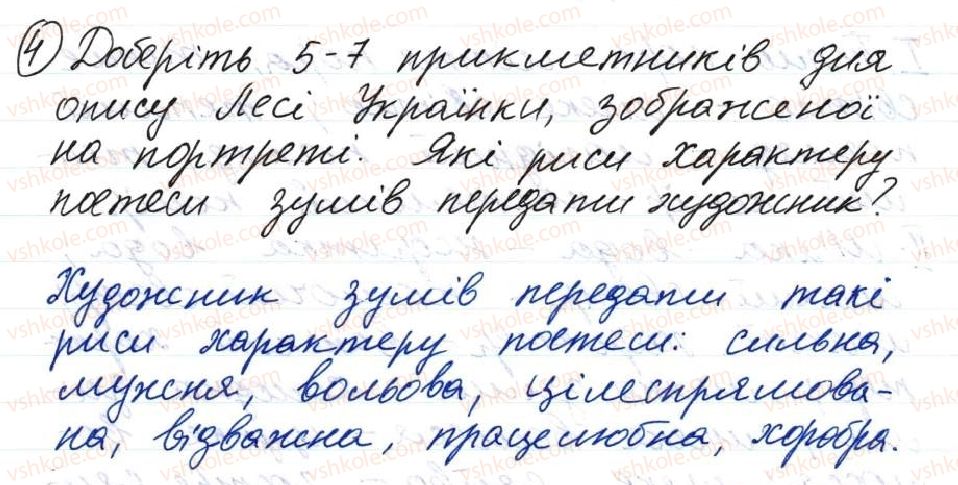 4 Доберіть 5-7 прикметників для
опису Лесі Українки, зображеної
на портреті. Які риси характеру
поетеси зумів передати художник?
Художник зумів передати такі
риси характеру поетеси: сильна,
мужня, вольова, цілеспрямова-
на, відважна, працелюбна, хоробра.